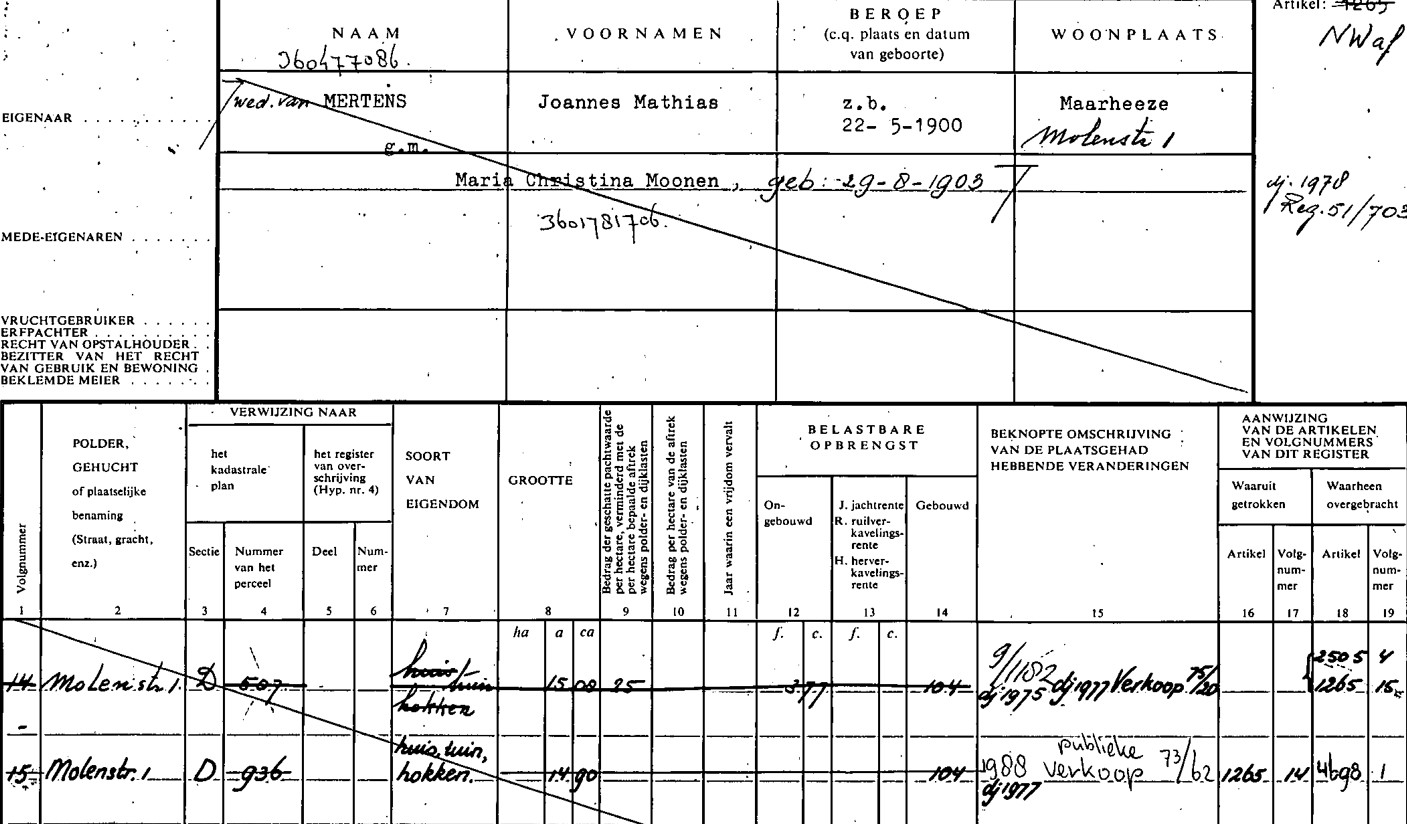 Artikel: 1265
NWaf
NAAM
VOORNAMEN
BEROEP
(c.q. plaats en datum
van geboorte)
WOONPLAATS
360477086.
EIGENAAR
wed. van MERTENS
Joannes Mathias
z.b.
22- 5-1900
Maarheeze
Molenstr 1
g.m.
Maria Christina Moonen, geb: 29-8-1903
3601781706.
dj. 1978
Reg. 51/703
MEDE-EIGENAREN
VRUCHTGEBRUIKER
ERFPACHTER
RECHT VAN OPSTALHOUDER
BEZITTER VAN HET RECHT
VAN GEBRUIK EN BEWONING
BEKLEMDE MEIER
Volgnummer
POLDER,
GEHUCHT
of plaatselijke
benaming
(Straat, gracht,
enz.)
VERWIJZING NAAR
het
kadastrale
plan
het register
van over-
schrijving
(Hyp. nr. 4)
Sectie
Nummer
van het
perceel
Deel
Num-
mer
SOORT
VAN
EIGENDOM
GROOTTE
Bedrag der geschatte pachtwaarde
per hectare, verminderd met de
per hectare bepaalde aftrek
wegens polder- en dijklasten
Bedrag per hectare van de aftrek
wegens polder- en dijklasten
Jaar waarin een vrijdom vervalt
BELASTBARE
OPBRENGST
On-
gebouwd
J. jachtrente
R. ruilver-
kavelings-
rente
H. herver-
kavelings-
rente
Gebouwd
BEKNOPTE OMSCHRIJVING
VAN DE PLAATSGEHAD
HEBBENDE VERANDERINGEN
AANWIJZING
VAN DE ARTIKELEN
EN VOLGNUMMERS
VAN DIT REGISTER
Waaruit
getrokken
Waarheen
overgebracht
Artikel
Volg-
num-
mer
Artikel
Volg-
num-
mer
1 2 3 4 5 6 7 8 9 10 11 12 13 14 15 16 17 18 19
ha a ca f. c. f. c.
14 Molenstr. 1. D 507 huis tuin hokken 15 00 25 3 77 104 9/1182 dj 1975 dj 1977 Verkoop 75/20 2505 4
1265 15
15 Molenstr. 1 D 936 huis, tuin, hokken. 14 90 104 1988 publieke verkoop 73/62 dj 1977 1265 14 4698 1